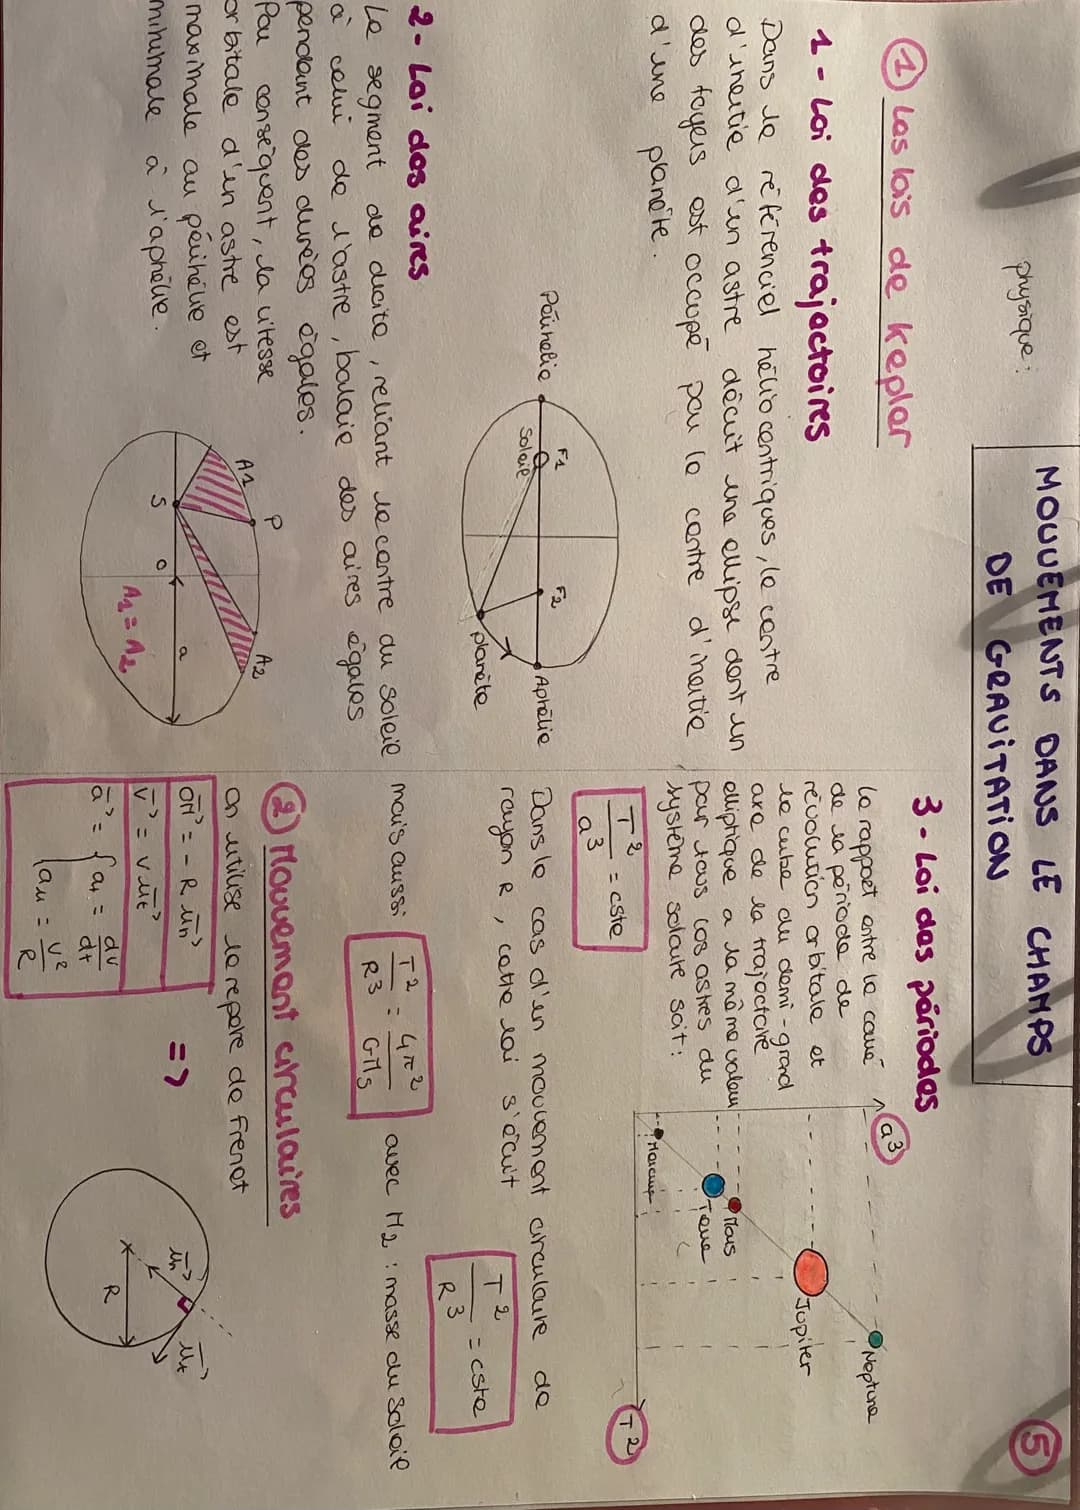 physique :
MOUVEMENTS DANS LE CHAMPS
DE GRAVITATION
5
① Les lois de kepler
1 - Loi des trajectoires
Dans le référenciel héliocentriques, le centre
d'inertie d'un astre décrit une ellipse dont un
des foyers est occupé par le centre d'inertie
d'une planète.
Périhélie
F1
Soleil
F2
Aphélie
planète
2 - Loi des aires
Le segment de droite, reliant le centre du soleil
à celui de l'astre, balaie des aires égales
pendant des durées égales.
Par conséquent, la vitesse
orbitale d'un astre est
maximale au périhélie et
minimale à l'aphélie.
A1
P
A2
S
O
a
A1 = A2
3 - Loi des périodes
Le rapport entre le carré
de la période de
révolution orbitale et
le cube du demi-grand
axe de la trajectoire
elliptique a la même valeur
pour tous les astres du
système solaire soit :
T²/a³ = cste
a³
Neptune
Jupiter
Mars
Terre
Mercure
T²
Dans le cas d'un mouvement circulaire de
rayon R, cette loi s'écrit
T²/R³ = cste
mais aussi T²/R³ = 4π²/GMs avec M2 : masse du soleil
② Mouvement circulaires
on utilise le repère de frenet
OM⃗ = - R un⃗
v⃗ = v ut⃗
a⃗ = { at = dv/dt
an = v²/R
=>
un⃗
ut⃗
R